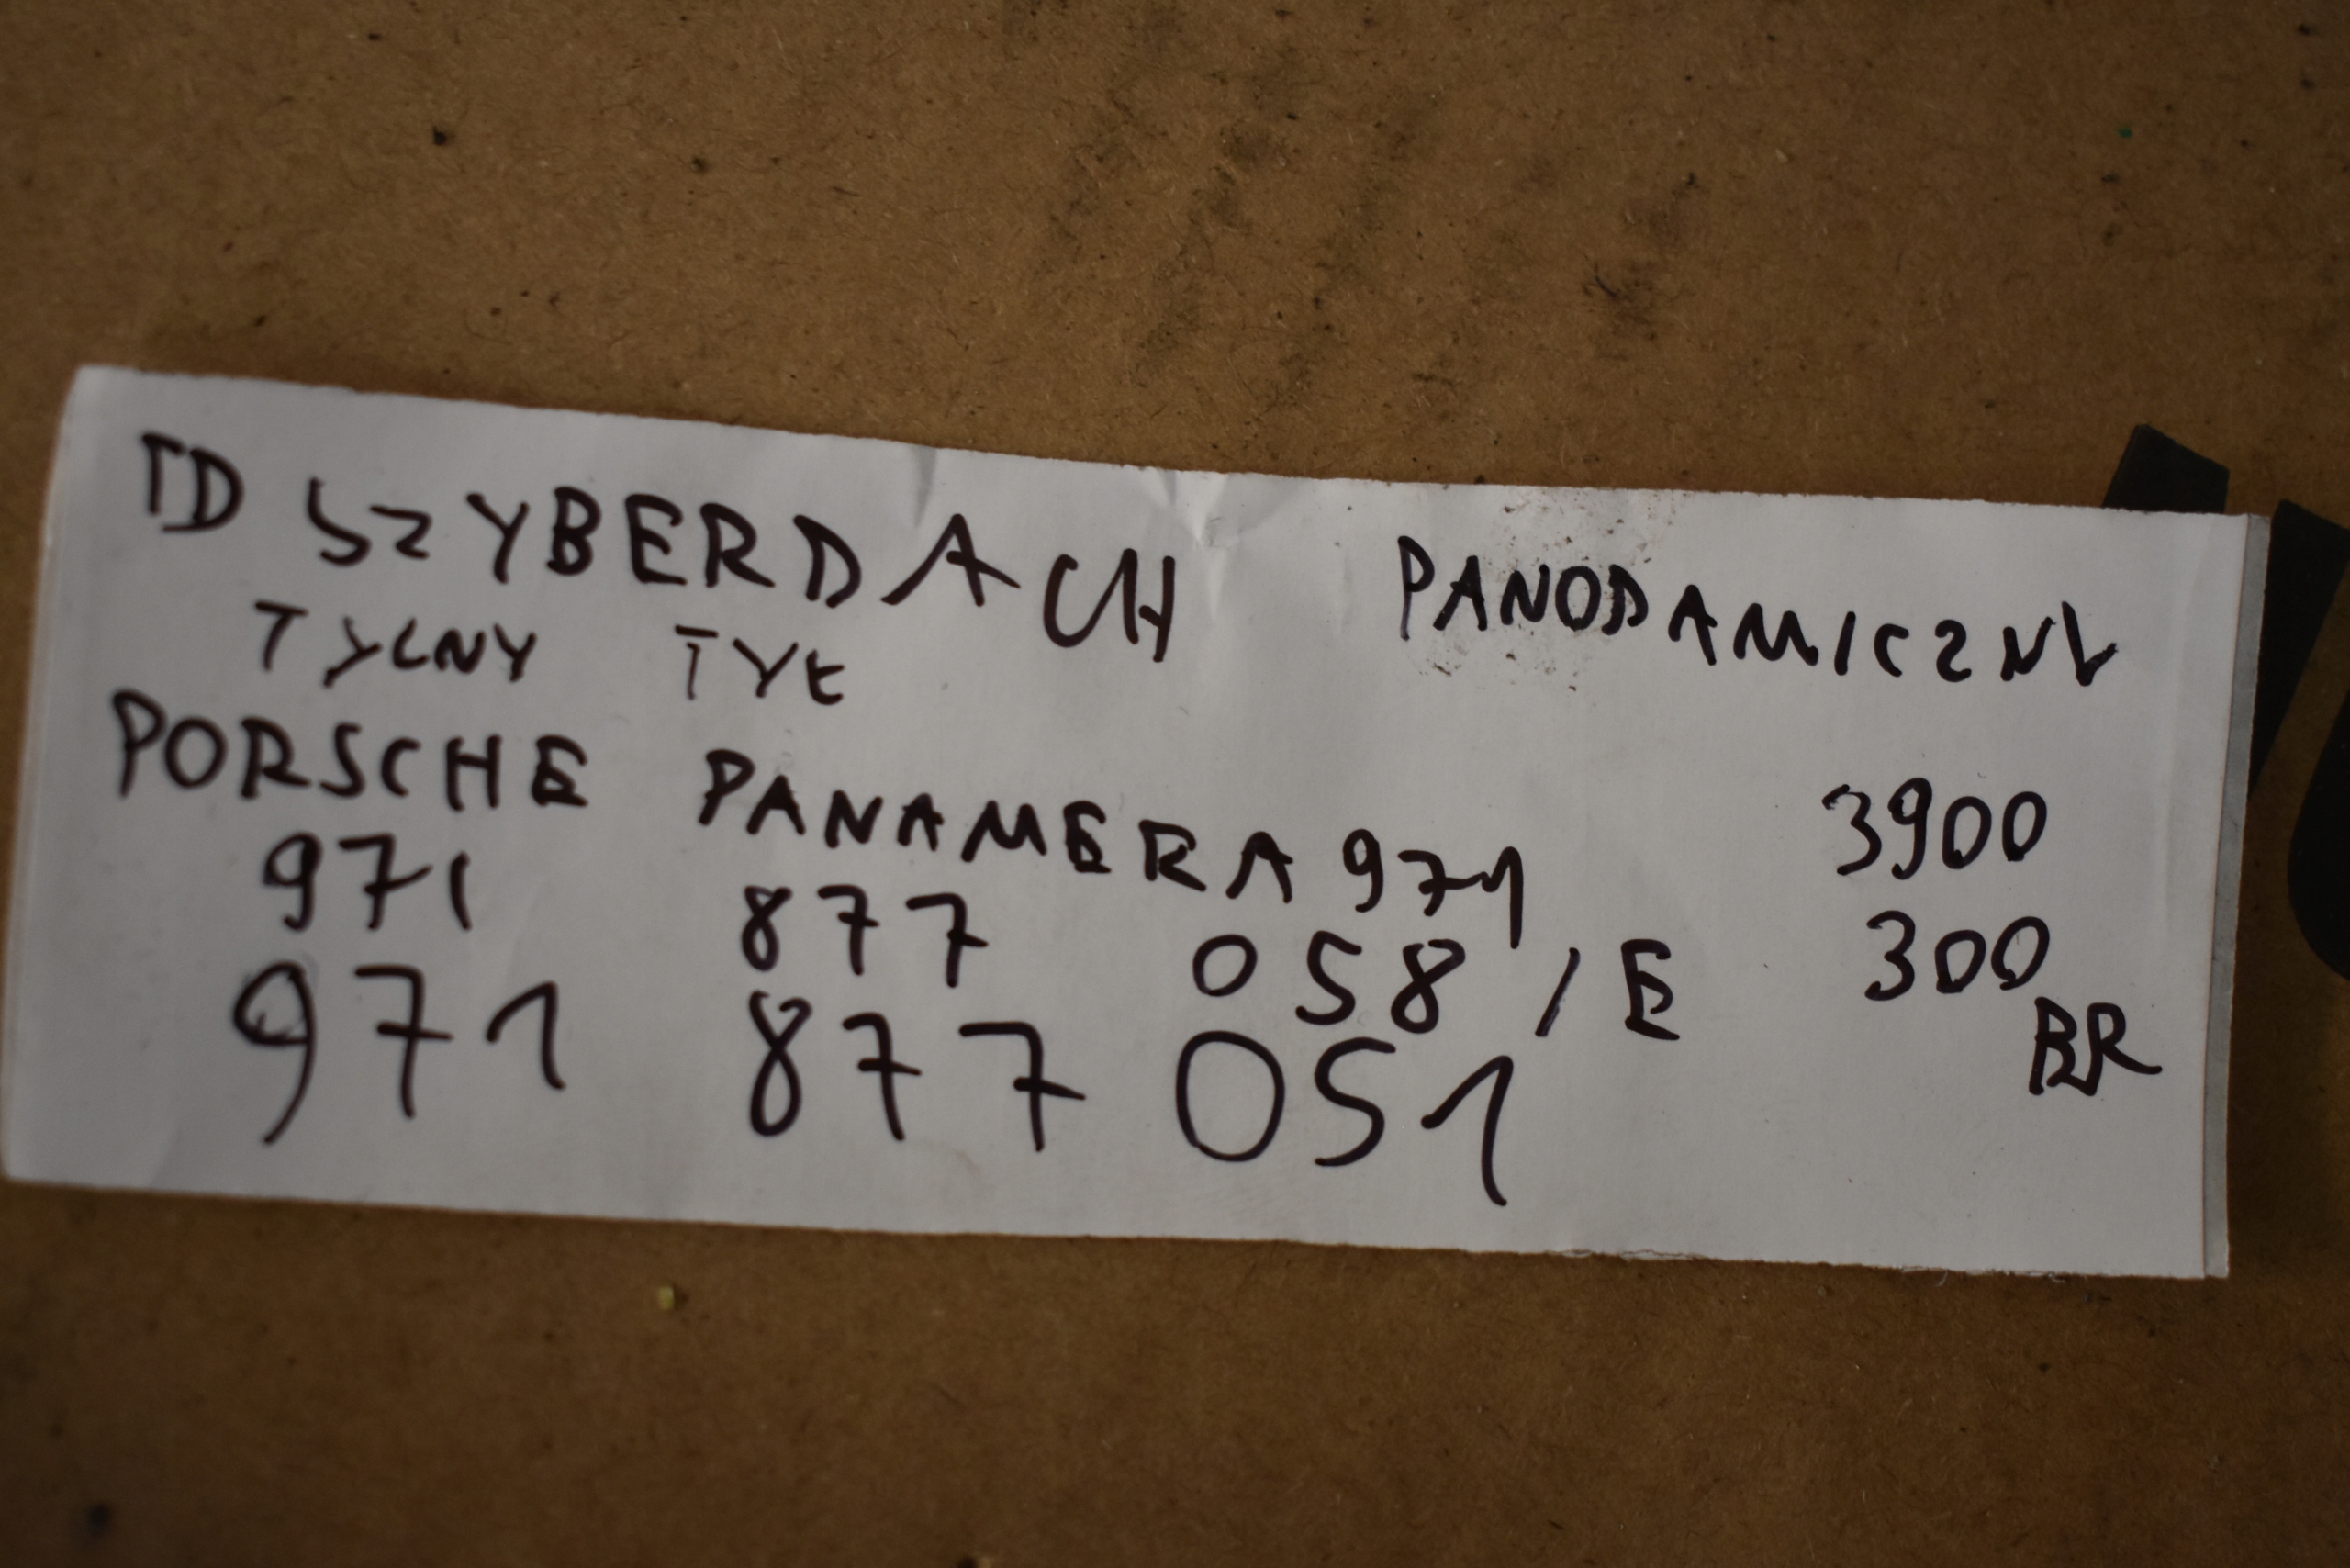 ID SZYBERDACH PANODAMICZNY
TYLNY TYŁ
PORSCHE PANAMERA 971 3900
971 877 058 / E 300
971 877 051 BR